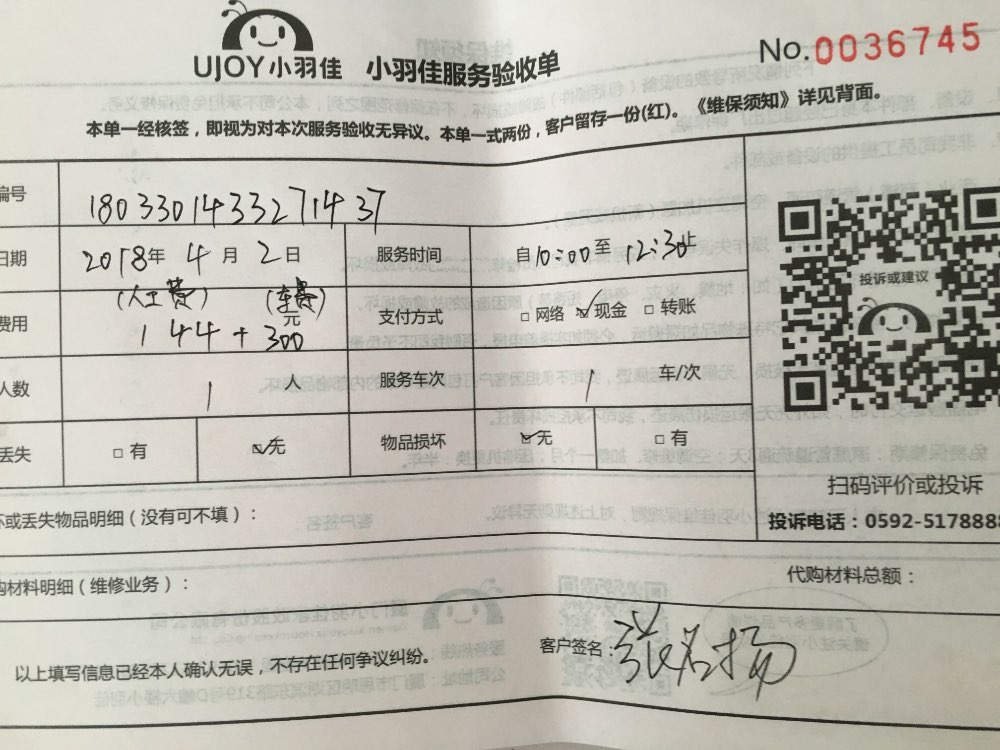 UJOY小羽佳 小羽佳服务验收单
No.0036745
本单一经核签，即视为对本次服务验收无异议。本单一式两份，客户留存一份(红)。《维保须知》详见背面。
编号 1803301433271437
日期 2018年 4月 2日 服务时间 自10:00至12:30止
(人工费) (车费)
费用 144+300 元 支付方式 □网络 ☑现金 □转账
人数 1 人 服务车次 1 车/次
丢失 □有 ☑无 物品损坏 ☑无 □有
投诉或建议
扫码评价或投诉
投诉电话：0592-5178888
坏或丢失物品明细（没有可不填）：
购材料明细（维修业务）：
代购材料总额：
以上填写信息已经本人确认无误，不存在任何争议纠纷。
客户签名：张名扬